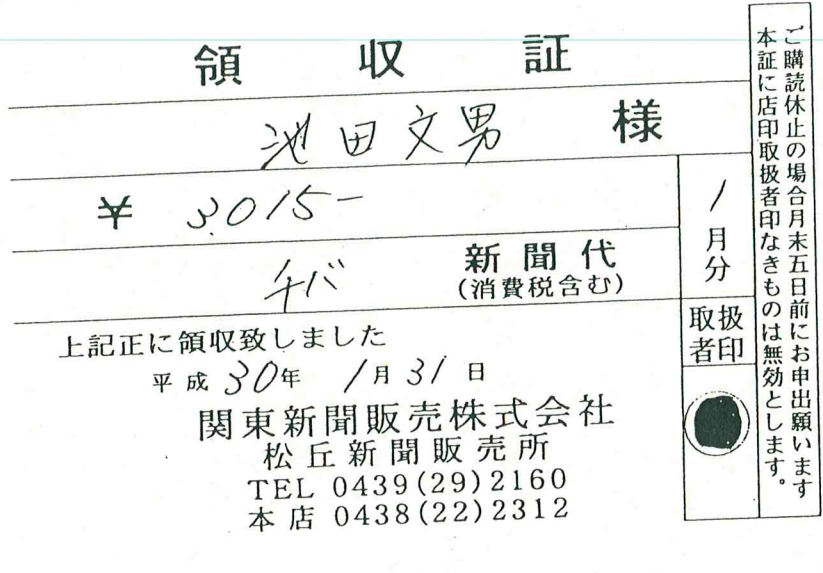 領収証
池田文男 様
¥ 3,015-
1月分
チバ 新聞代
(消費税含む)
取扱者印
上記正に領収致しました
平成30年 1月31日
関東新聞販売株式会社
松丘新聞販売所
TEL 0439(29)2160
本店 0438(22)2312
ご購読休止の場合月末五日前にお申出願います
本証に店印取扱者印なきものは無効とします。